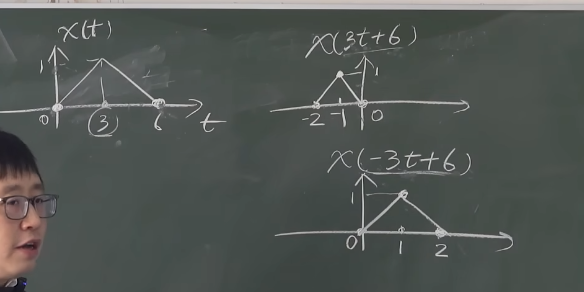 x(t)
1
0 3 6 t
x(3t+6)
1
-2 -1 0
x(-3t+6)
1
0 1 2